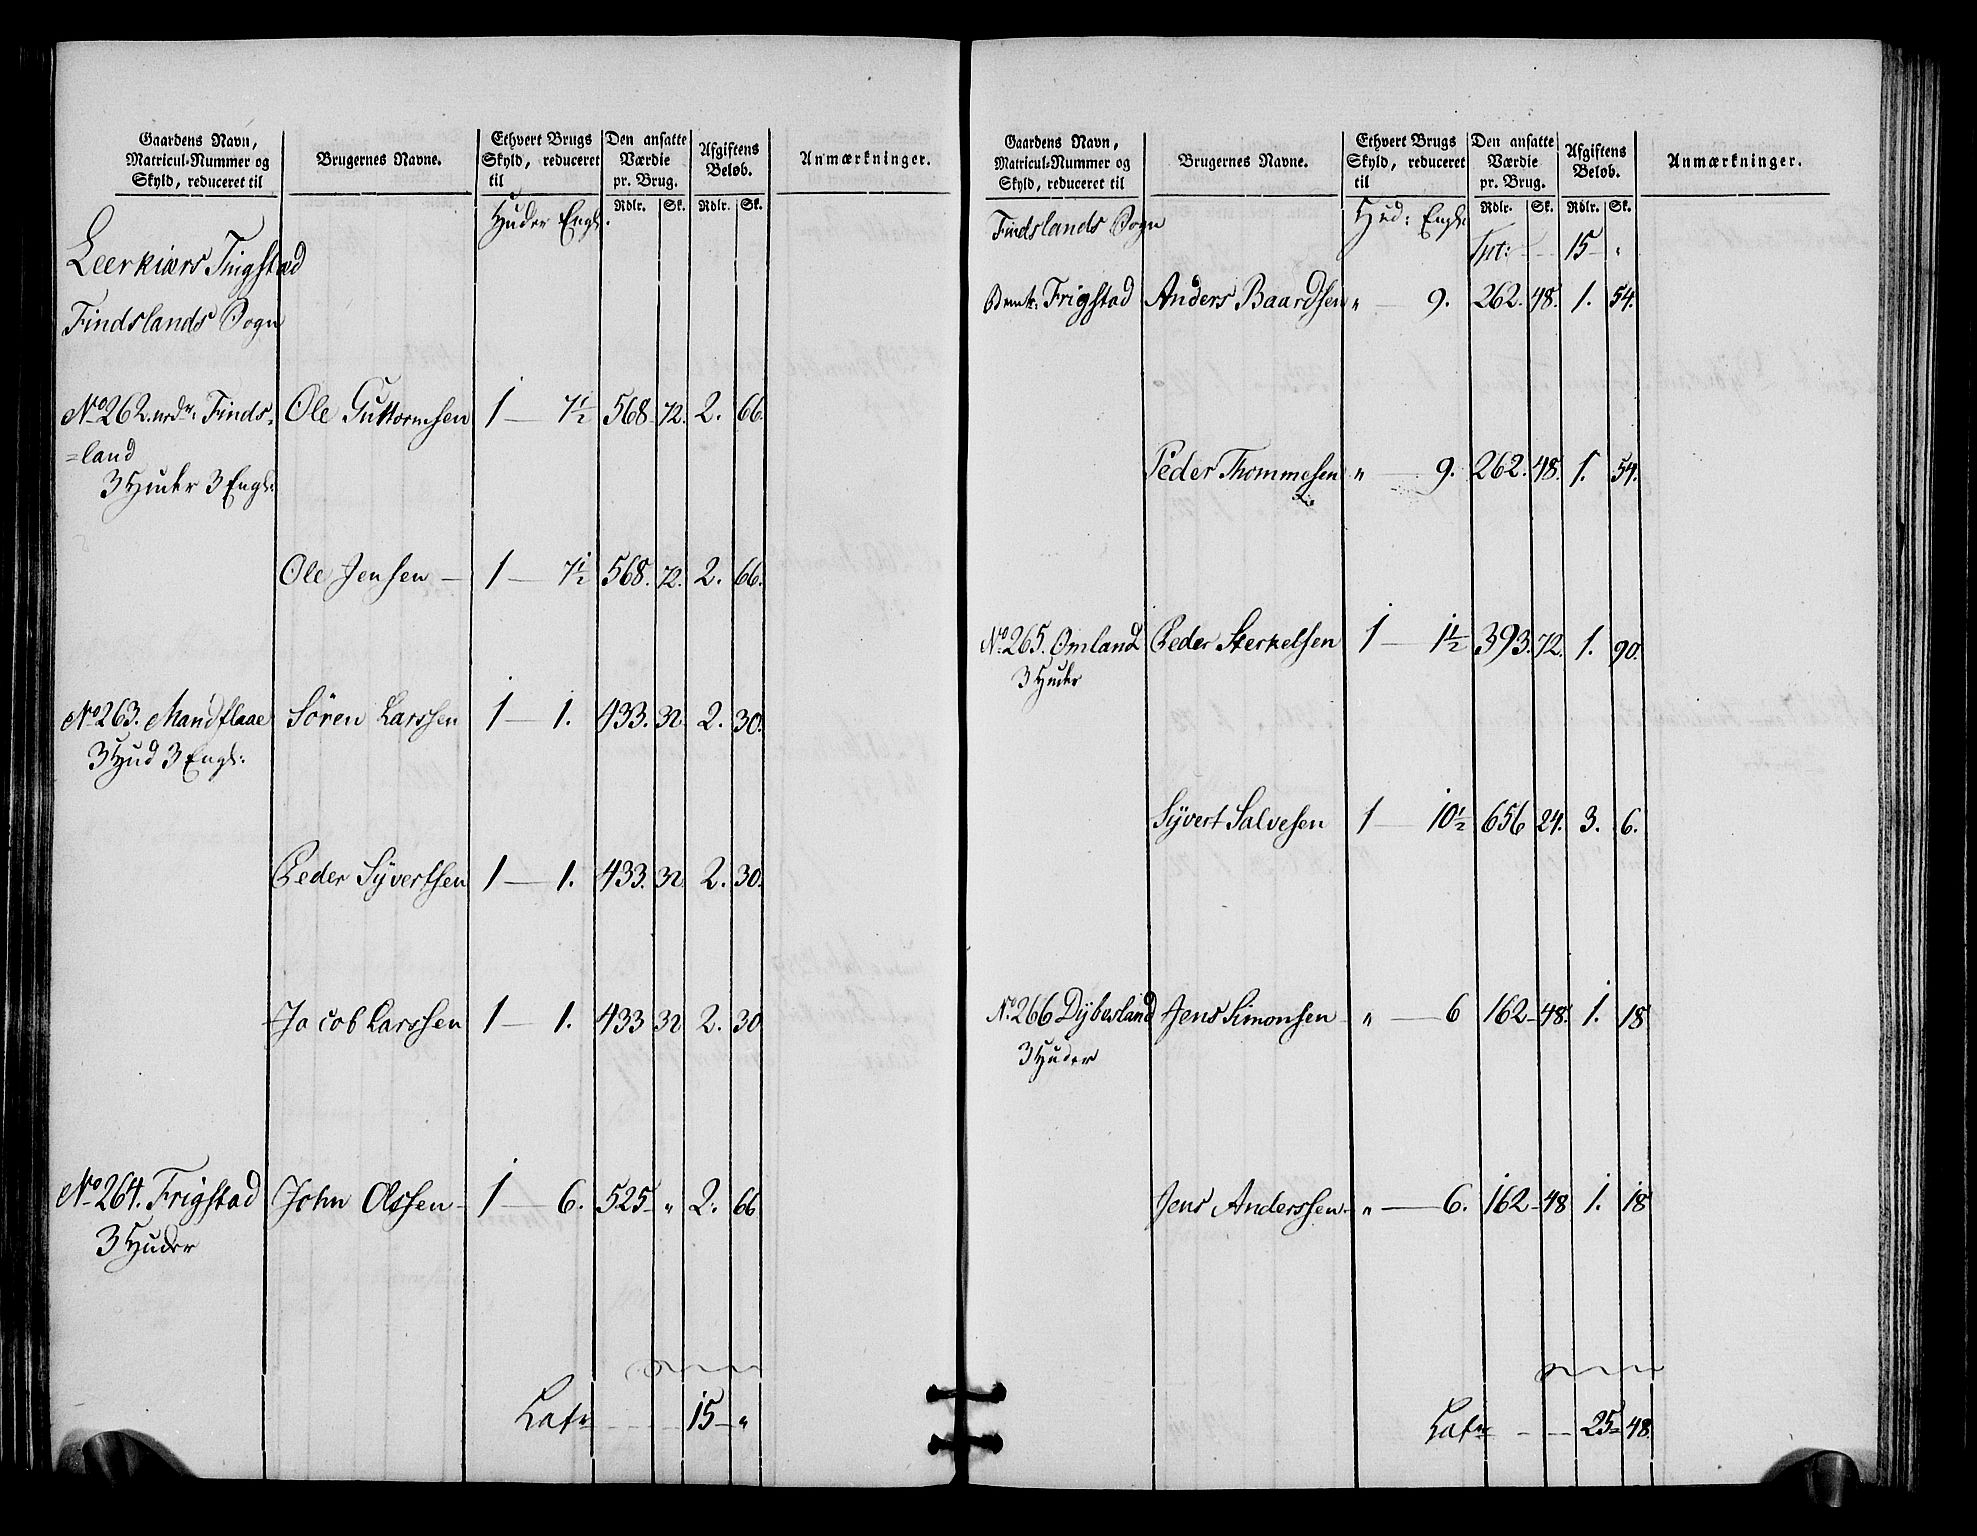 Gaardens Navn, Matricul-Nummer og Skyld, reduceret til | Brugernes Navne. | Ethvert Brugs Skyld, reduceret til | Den ansatte Værdie pr. Brug. | Afgiftens Beløb. | Anmærkninger.
Huder Engl. | Rdlr. | Sk. | Rdlr. | Sk.
Leerkiærs Tingstæd
Findslands Sogn
No 262. Finds-
=land | Ole Guttormsen | 1 — 7½ | 568. | 72. | 2. | 66.
3 Huder 3 Engl:
Ole Jensen — | 1 — 7½ | 568. | 72. | 2. | 66.
No 263. Mandflaae | Sören Larssen | 1 — 1. | 433. | 32 | 2. | 30.
3 Hud 3 Engl:
Peder Sÿvertsen | 1 — 1. | 433. | 32 | 2. | 30.
Jacob Larssen | 1 — 1. | 433 | 32 | 2. | 30
No 264. Frigstad | John Olssen | 1 — 6. | 525 | " | 2. | 66
3 Huder
Latr | 15 — "
Gaardens Navn, Matricul-Nummer og Skyld, reduceret til | Brugernes Navne. | Ethvert Brugs Skyld, reduceret til | Den ansatte Værdie pr. Brug. | Afgiftens Beløb. | Anmærkninger.
Findslands Sogn | Hud: Engl: | Rdlr. | Sk. | Rdlr. | Sk.
Trt: — 15 "
Frigstad | Anders Baardsen | " — 9. | 262. | 48. | 1. | 54.
Peder Thommesen | " — 9. | 262. | 48. | 1. | 54.
No 265. Omland | Peder Sterkelsen | 1 — 1½ | 393. | 72. | 1. | 90.
3 Huder
Sÿvert Salvesen | 1 — 10½ | 656 | 24. | 3. | 6.
No 266 Dÿbesland | Jens Simonsen | " — 6 | 162 | 48. | 1. | 18
3 Huder
Jens Anderssen | " — 6. | 162 | 48 | 1. | 18
Latr | 25 48.